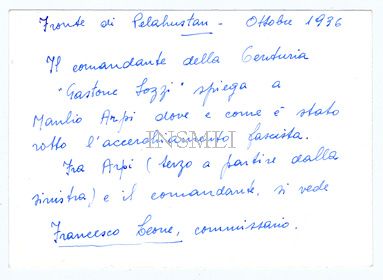 Fronte di Pelahustan - Ottobre 1936
Il comandante della Centuria
"Gastone Sozzi" spiega a
Manlio Arpi dove e come è stato
rotto l'accerchiamento fascista.
INSMLI
Fra Arpi (terzo a partire dalla
sinistra) e il comandante, si vede
Francesco Leone, commissario.